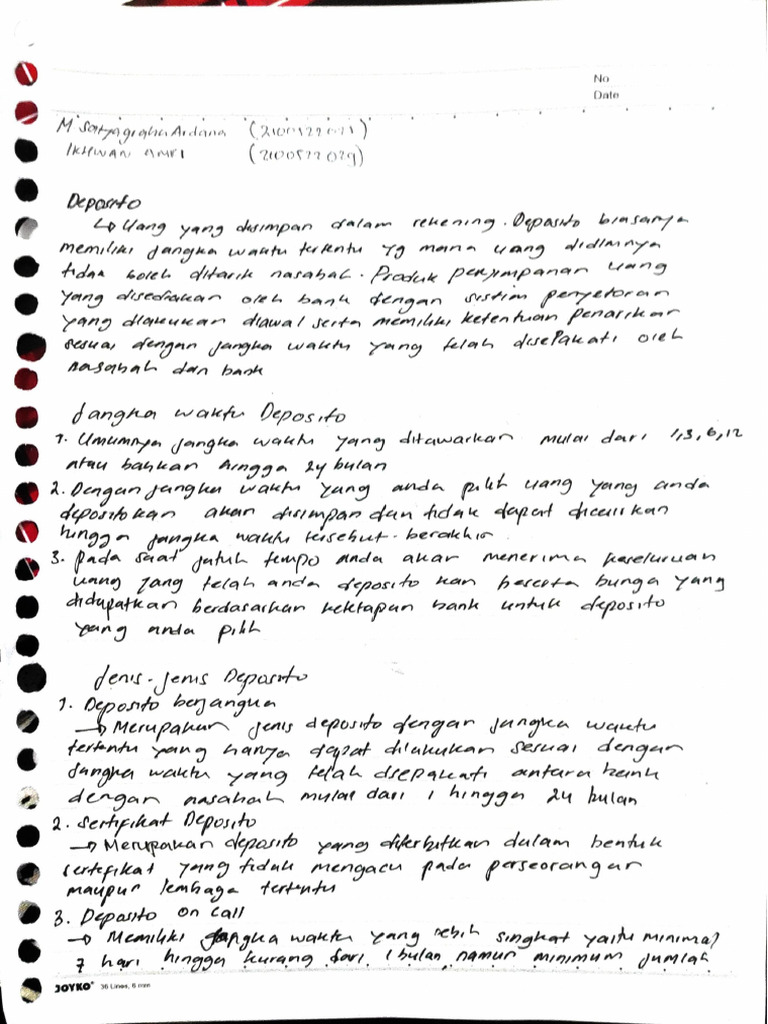 No
Date
M Satyagraha Ardana (2100522021)
IKHWAN AMRI (2100522029)
Deposito
↳ Uang yang disimpan dalam rekening. Deposito biasanya
memiliki jangka waktu tertentu yg mana uang didlmnya
tidak boleh ditarik nasabah. Produk penyimpanan uang
yang disediakan oleh bank dengan sistim penyetoran
yang dilakukan diawal serta memiliki ketentuan penarikan
sesuai dengan jangka waktu yang telah disepakati oleh
nasabah dan bank
Jangka waktu Deposito
1. Umumnya jangka waktu yang ditawarkan mulai dari 1,3,6,12
atau bahkan hingga 24 bulan
2. Dengan jangka waktu yang anda pilih uang yang anda
depositokan akan disimpan dan tidak dapat dicairkan
hingga jangka waktu tersebut berakhir.
3. pada saat jatuh tempo anda akan menerima keseluruan
uang yang telah anda deposito kan beserta bunga yang
didapatkan berdasarkan ketetapan bank untuk deposito
yang anda pilih
Jenis-jenis Deposito
1. Deposito berjangka
→ Merupakan jenis deposito dengan jangka waktu
tertentu yang hanya dapat dilakukan sesuai dengan
jangka waktu yang telah dsepakati antara bank
dengan nasabah mulai dari 1 hingga 24 bulan
2. Sertifikat Deposito
→ Merupakan deposito yang diterbitkan dalam bentuk
sertifikat yang tidak mengacu pada perseorangan
maupun lembaga tertentu
3. Deposito on call
→ Memiliki jangka waktu yang lebih singkat yaitu minimal
7 hari hingga kurang dari 1 bulan namun minimum jumlah
JOYKO 36 Lines, 6 mm